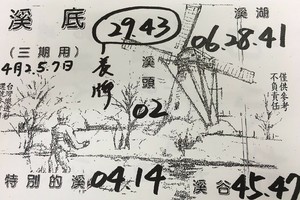 溪底
(三期用)
4月2.5.7日
29.43
長牌
溪頭
02
溪湖
06.28.41
僅供參考
不負責任
特別的溪
04.14
溪谷
45.47